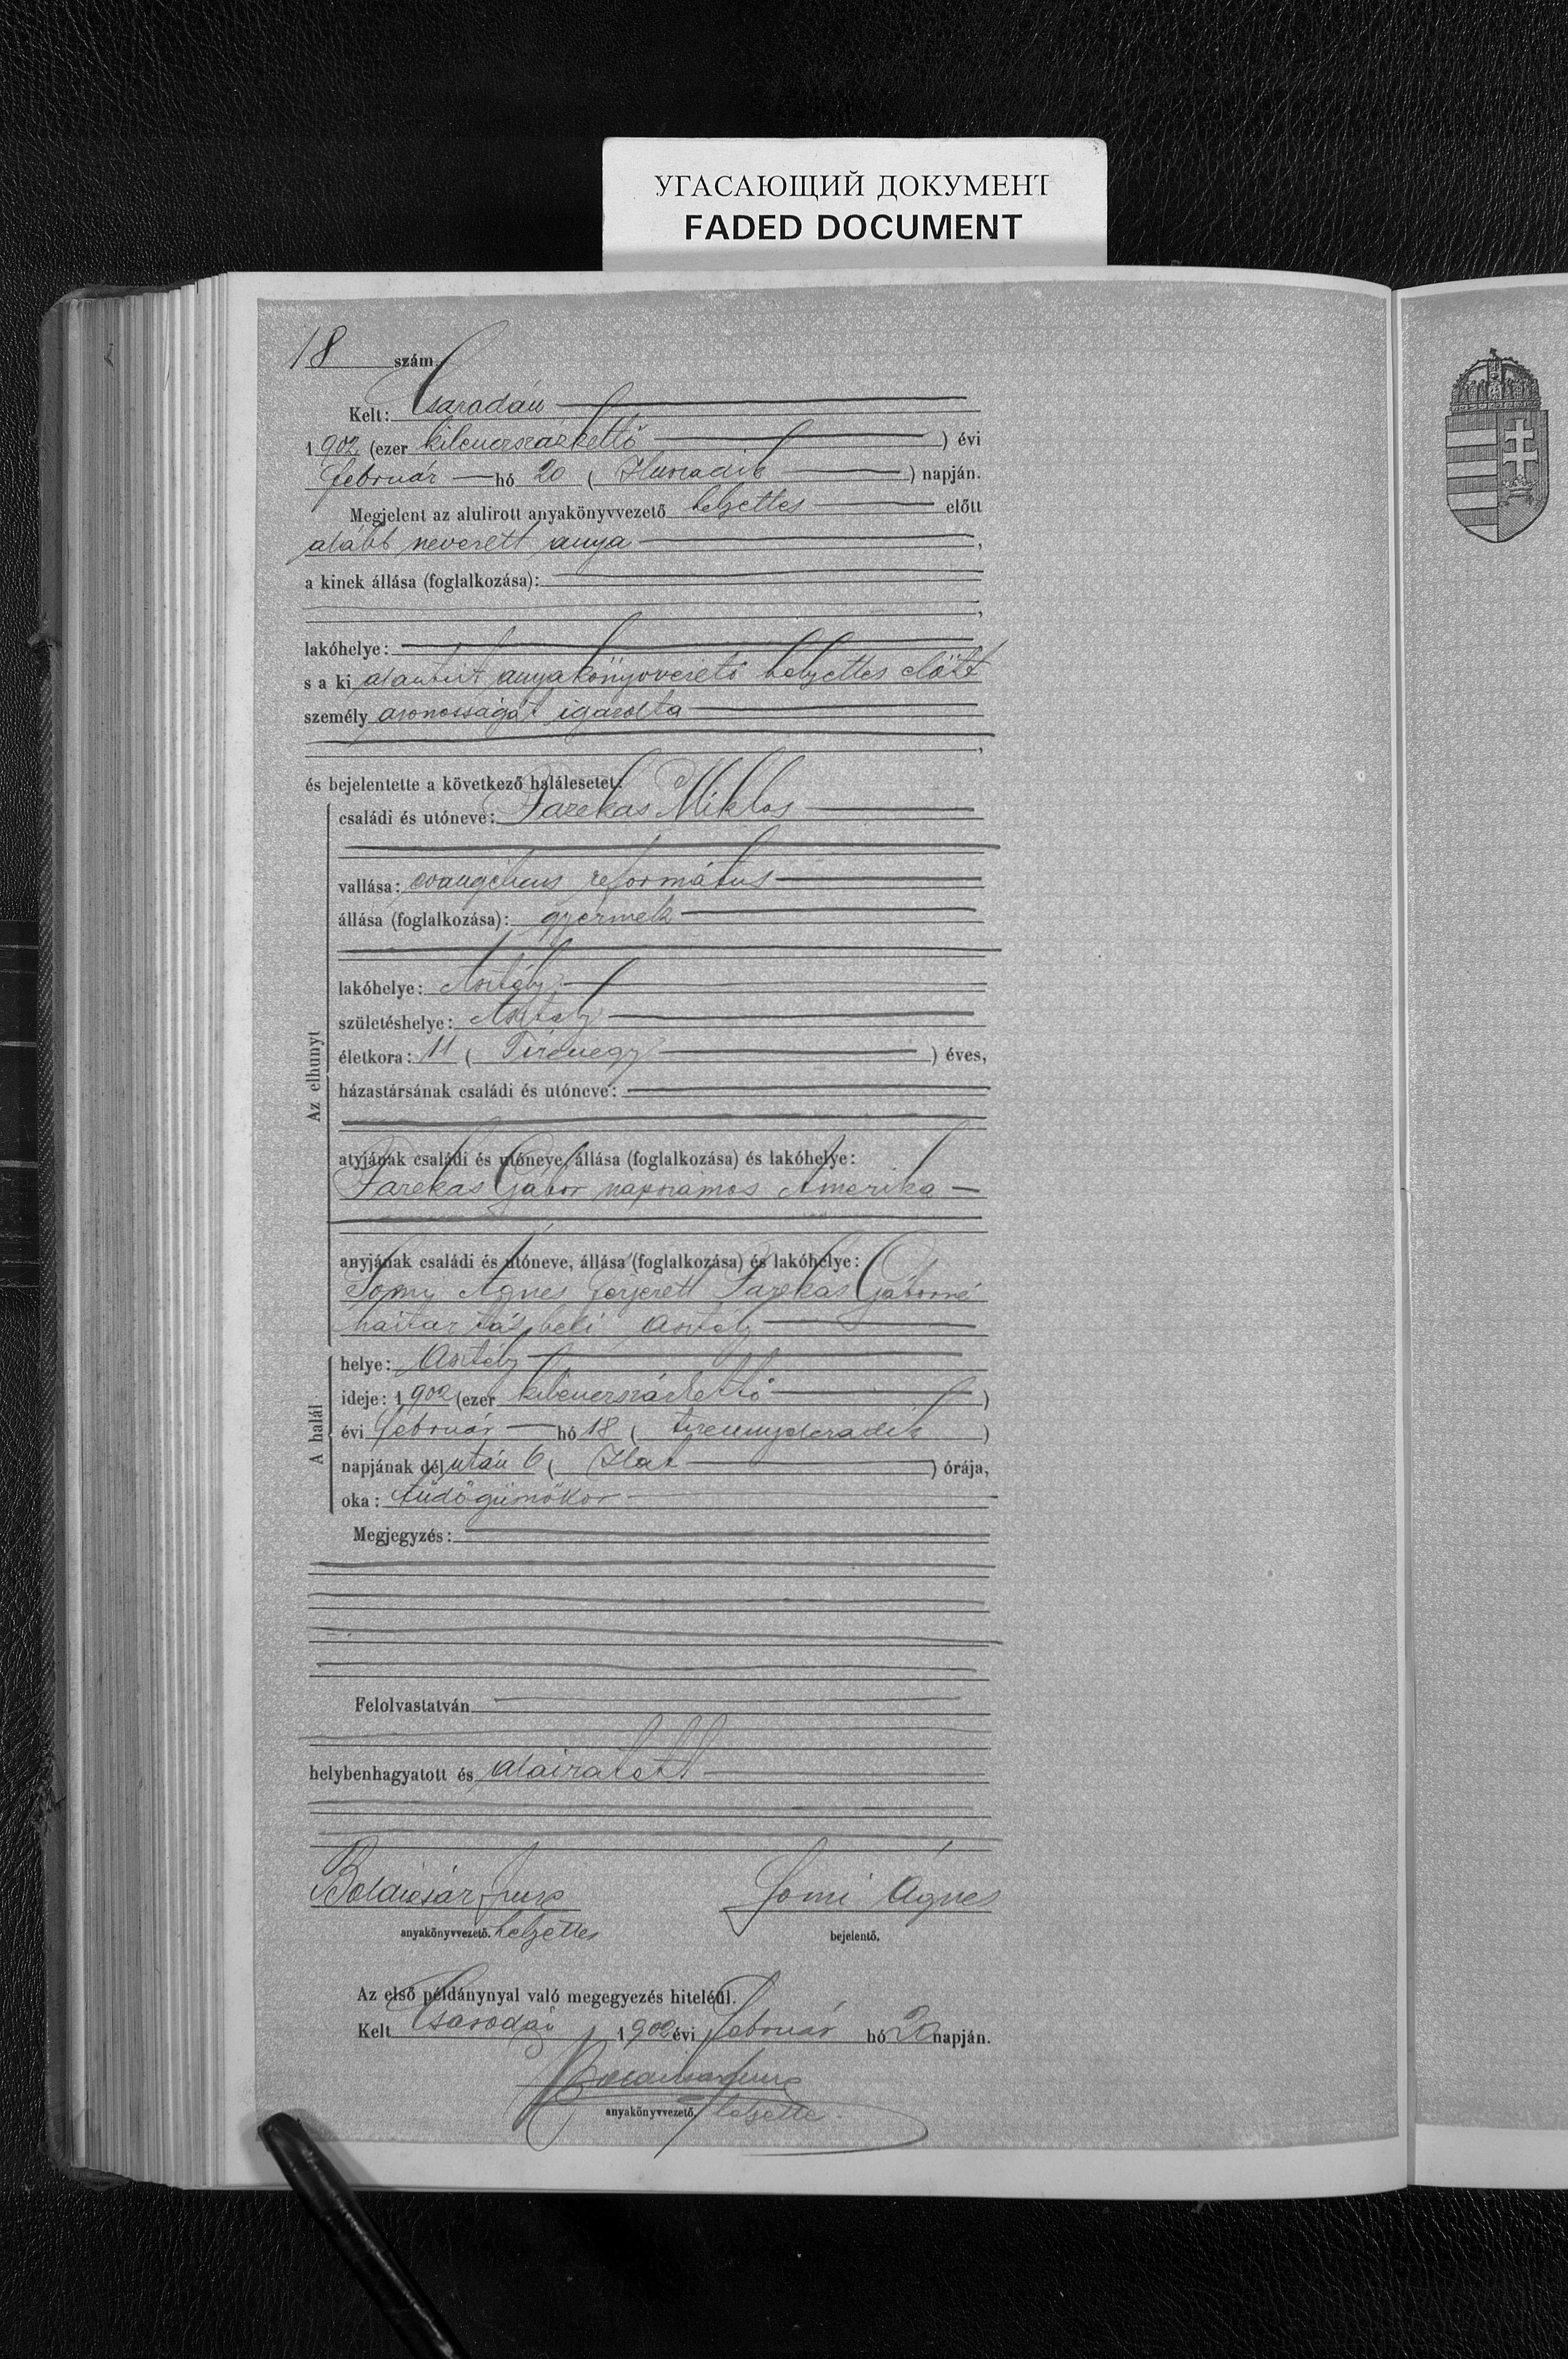 УГАСАЮЩИЙ ДОКУМЕНТ
FADED DOCUMENT
18 szám.
Kelt: Csaradán
1902 (ezer kilenczszázkettő) évi
február hó 20 (Huszadik) napján.
Megjelent az alulirott anyakönyvvezető helyettes előtt
alább nevezett anya,
a kinek állása (foglalkozása):
lakóhelye:
s a ki alantirt anyakönyvvezető helyettes előtt
személy azonosságát igazolta,
és bejelentette a következő halálesetet:
Az elhunyt
családi és utóneve: Fazekas Miklos
vallása: evangelicus református
állása (foglalkozása): gyermek
lakóhelye: Asztély
születéshelye: Asztély
életkora: 11 (Tizenegy) éves,
házastársának családi és utóneve:
atyjának családi és utóneve, állása (foglalkozása) és lakóhelye:
Fazekas Gábor napszámos Amerika
anyjának családi és utóneve, állása (foglalkozása) és lakóhelye:
Ágnes férjezett Fazekas Gáborné
háztartásbeli Asztély
A halál
helye: Asztély
ideje: 1902 (ezer kilenczszázkettő)
évi február hó 18 (tizennyolczadik)
napjának dél után 6 (Hat) órája,
oka: tüdőgümőkór
Megjegyzés:
Felolvastatván
helybenhagyatott és aláiratott
Ágnes
anyakönyvvezető. helyettes
bejelentő.
Az első példánynyal való megegyezés hiteléül.
Kelt Csarodán 1902 évi február hó 20 napján.
anyakönyvvezető. helyette